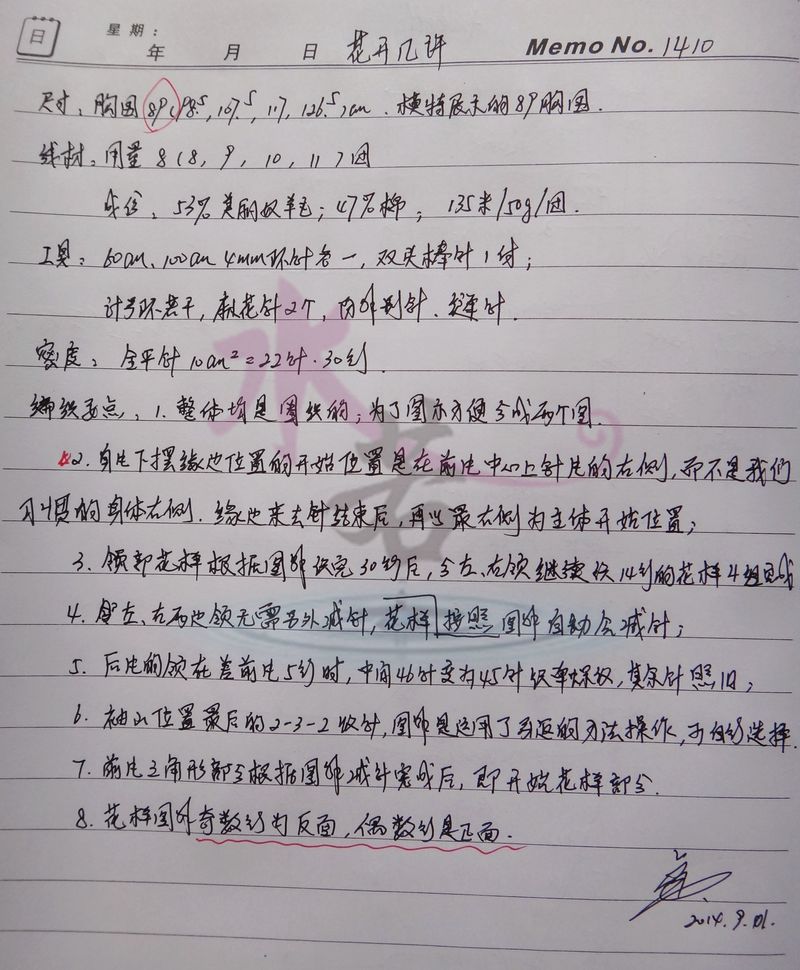 日 星期：
年 月 日 花开几许 Memo No. 1410
尺寸：胸围89(98.5, 107.5, 117, 126.5)cm．模特展示的89胸围．
线材：用量8(8, 9, 10, 11)团
成份：53%美丽奴羊毛；47%棉；135米/50g/团．
工具：60cm、100cm 4mm环针各一，双头棒针1付；
计号环若干，麻花针2个，防解别针、缝针．
密度：全平针10cm²=22针·30行．
编织要点：1. 整体均是圈织的；为了图示方便分成两个图．
2. 身片下摆缘边位置的开始位置是在前片中心上针片的右侧，而不是我们
习惯的身体右侧．缘边来去针结束后，再以最右侧为主体开始位置；
3. 领部花样根据图解织完30行后，分左、右领继续织14行的花样4组完成
4. 左、右两边领无需另外减针，花样按照图解自动会减针；
5. 后片的领在差前片5行时，中间46针变为45针织单罗纹，其余针照旧；
6. 袖山位置最后的2-3-2收针，图解是运用了引返的方法操作，可自行选择．
7. 前片三角形部分根据图解减针完成后，即开始花样部分．
8. 花样图解奇数行为反面，偶数行是正面．
2014.9.01.
水若